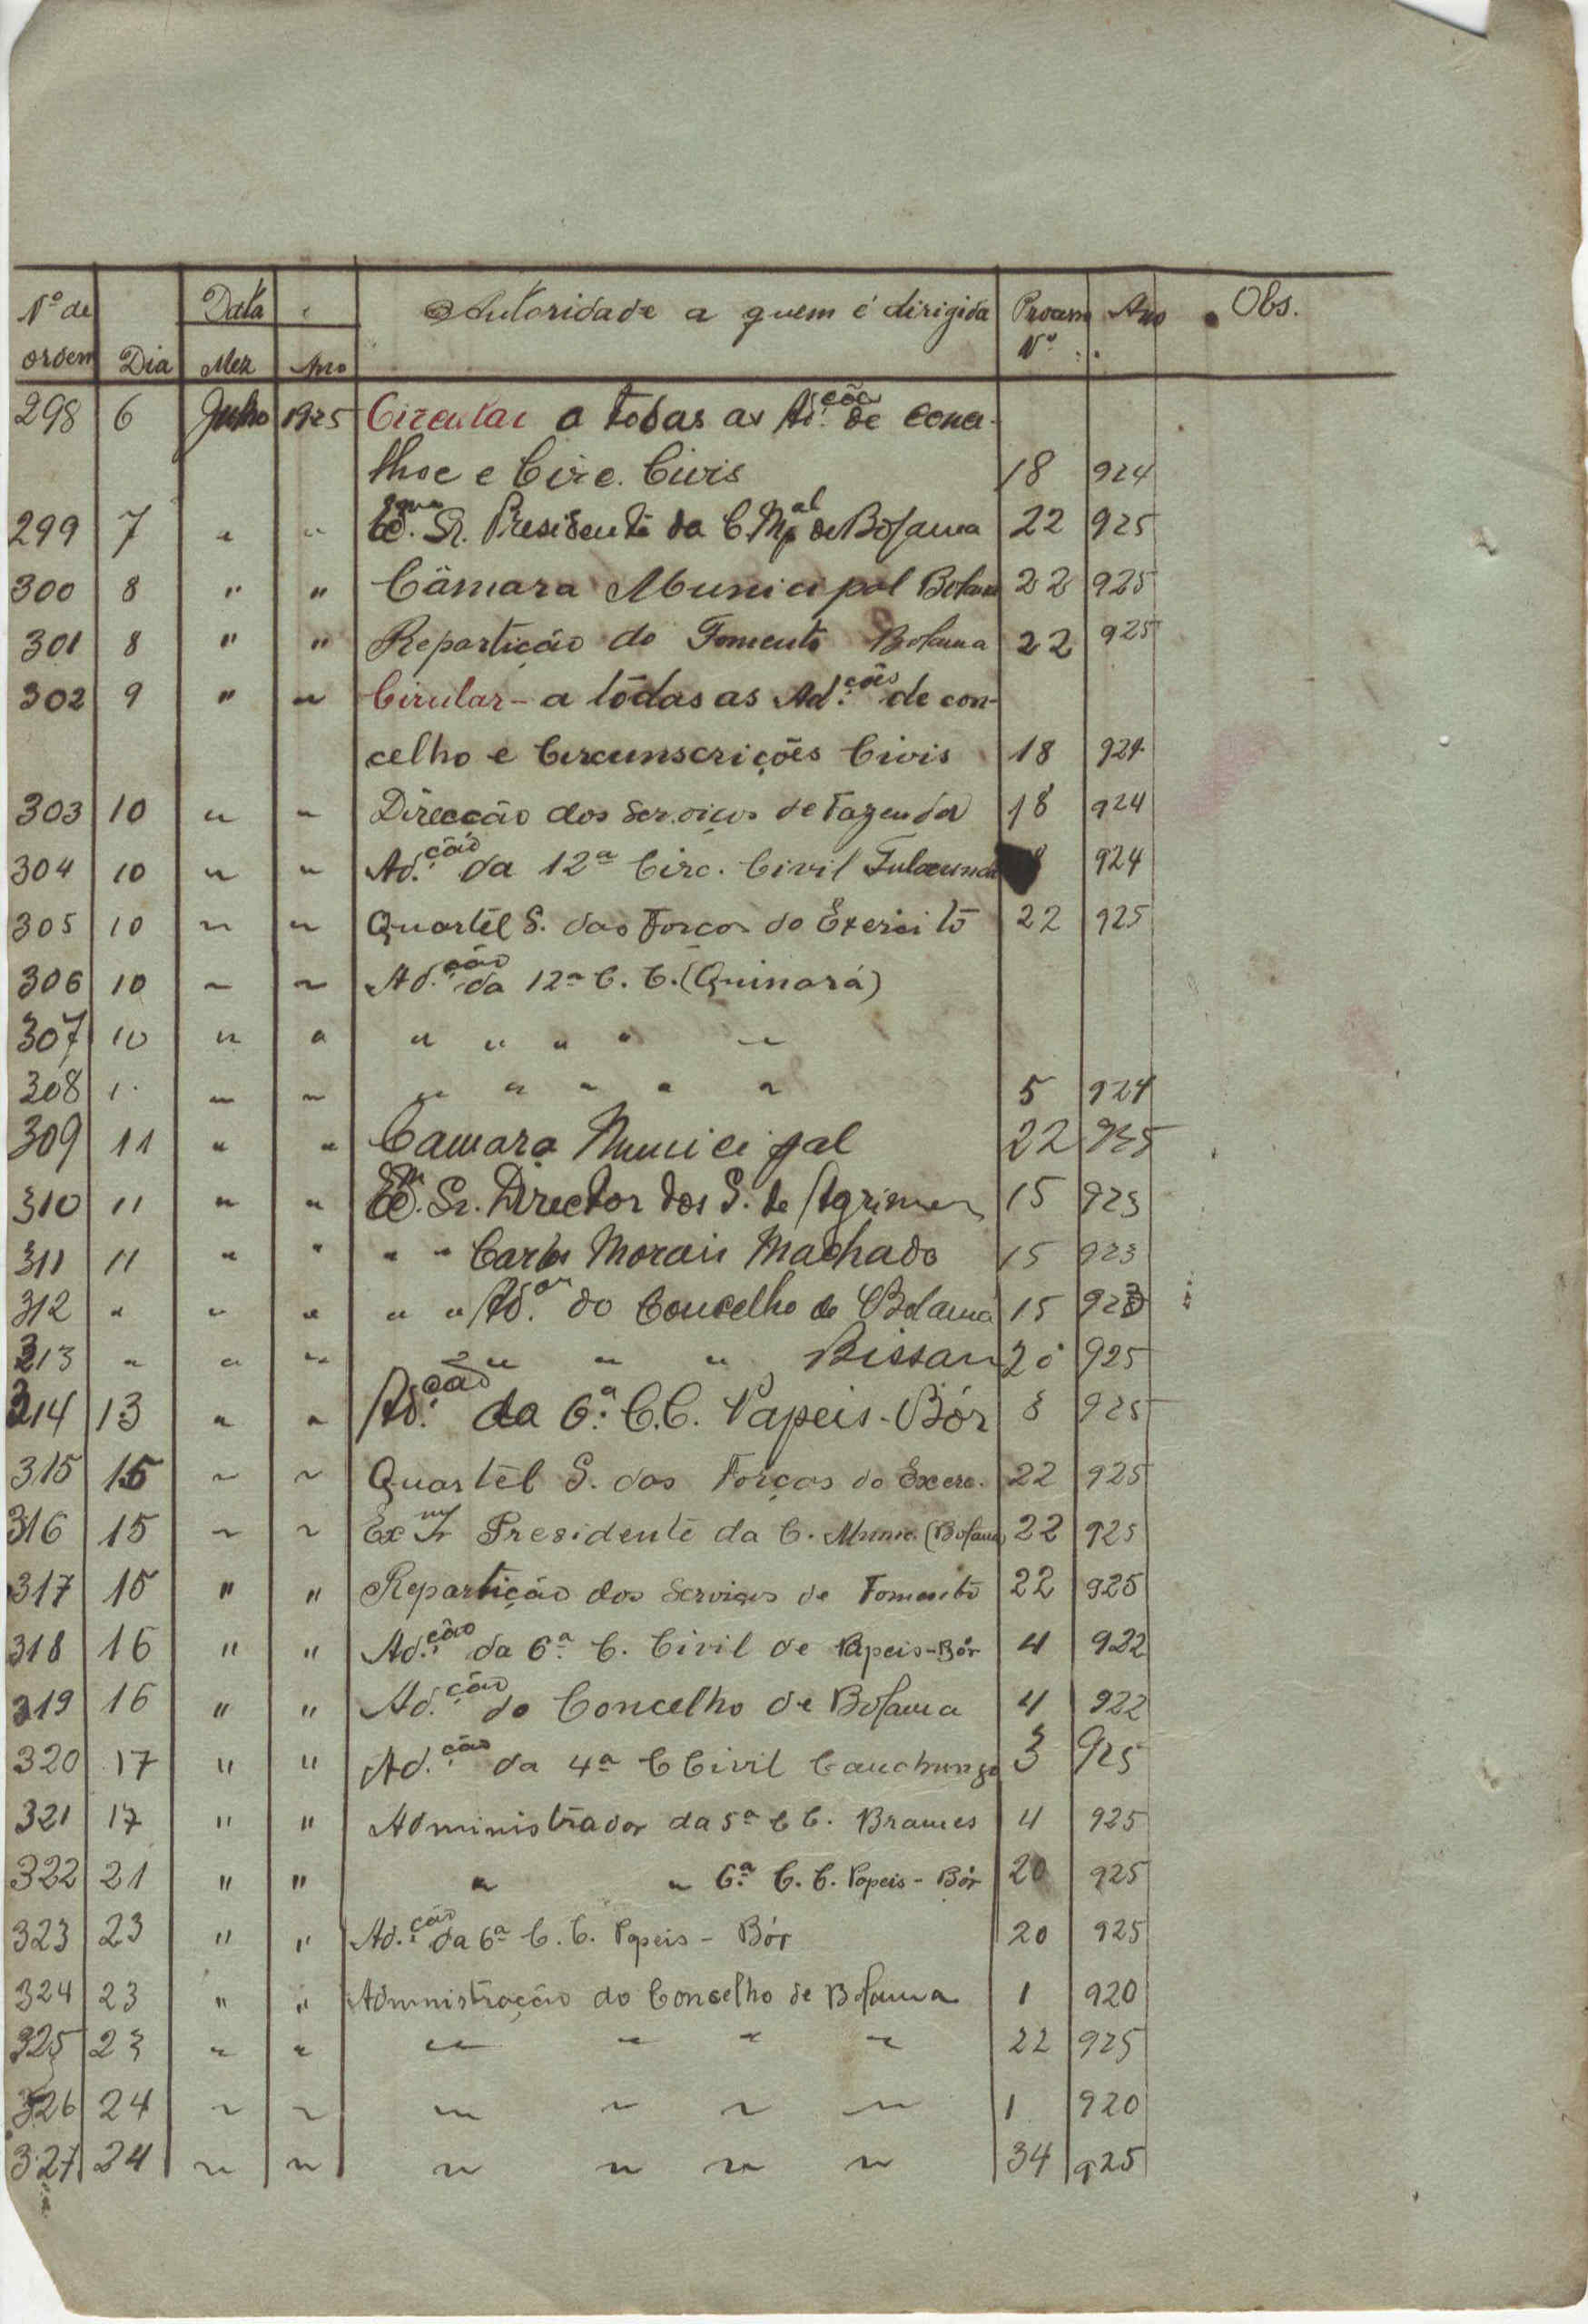 Nº de Data Autoridade a quem é dirigida Processo Ano Obs.
ordem Dia Mez Ano Nº
298 6 1925 Circular a todas as Ad.ções de conce-
lhoe e Circ. Civis 18 924
299 7 " " Exmo. Sr. Presidente da C. Mpal de Bolama 22 925
300 8 " " Câmara Municipal Bolama 22 925
301 8 " " Repartição do Fomento Bolama 22 925
302 9 " " Cirular - a tôdas as Ad.ções de con-
celho e Circunscrições Civis 18 924
303 10 " " Direcção dos Serviços de Fazenda 18 924
304 10 " " Ad.ção da 12ª Circ. Civil Fulacunda 924
305 10 " " Quartél G. das Forças do Exercito 22 925
306 10 " " Ad.ção da 12ª C. C. (Quinará)
307 10 " " " " " " "
308 " " " " " " " 5 924
309 11 " " Camara Municipal 22 925
310 11 " " Exmo. Sr. Director dos S. de Agrimen 15 923
311 11 " " " " Carlos Morais Machado 15 923
312 " " " " " Ad.or do Concelho de Bolama 15 923
313 " " " " " " " Bissau 20 925
314 13 " " Ad.ção da 6ª C.C. Papeis-Bór 3 925
315 15 " " Quartél G. das Forças do Exerc. 22 925
316 15 " " Exmo Sr Presidente da C. Munic. (Bolama) 22 925
317 15 " " Repartição dos Serviços de Fomento 22 925
318 16 " " Ad.ção da 6ª C. Civil de Papeis-Bór 4 922
319 16 " " Ad.ção do Concelho de Bolama 4 922
320 17 " " Ad.ção da 4ª C Civil Canchungo 3 925
321 17 " " Administrador da 5ª C C. Brames 4 925
322 21 " " " " 6ª C. C. Papeis - Bór 20 925
323 23 " " Ad.ção da 6ª C. C. Papeis - Bór 20 925
324 23 " " Administração do Concelho de Bolama 1 920
325 23 " " " " " " 22 925
326 24 " " " " " " 1 920
327 24 " " " " " " 34 925